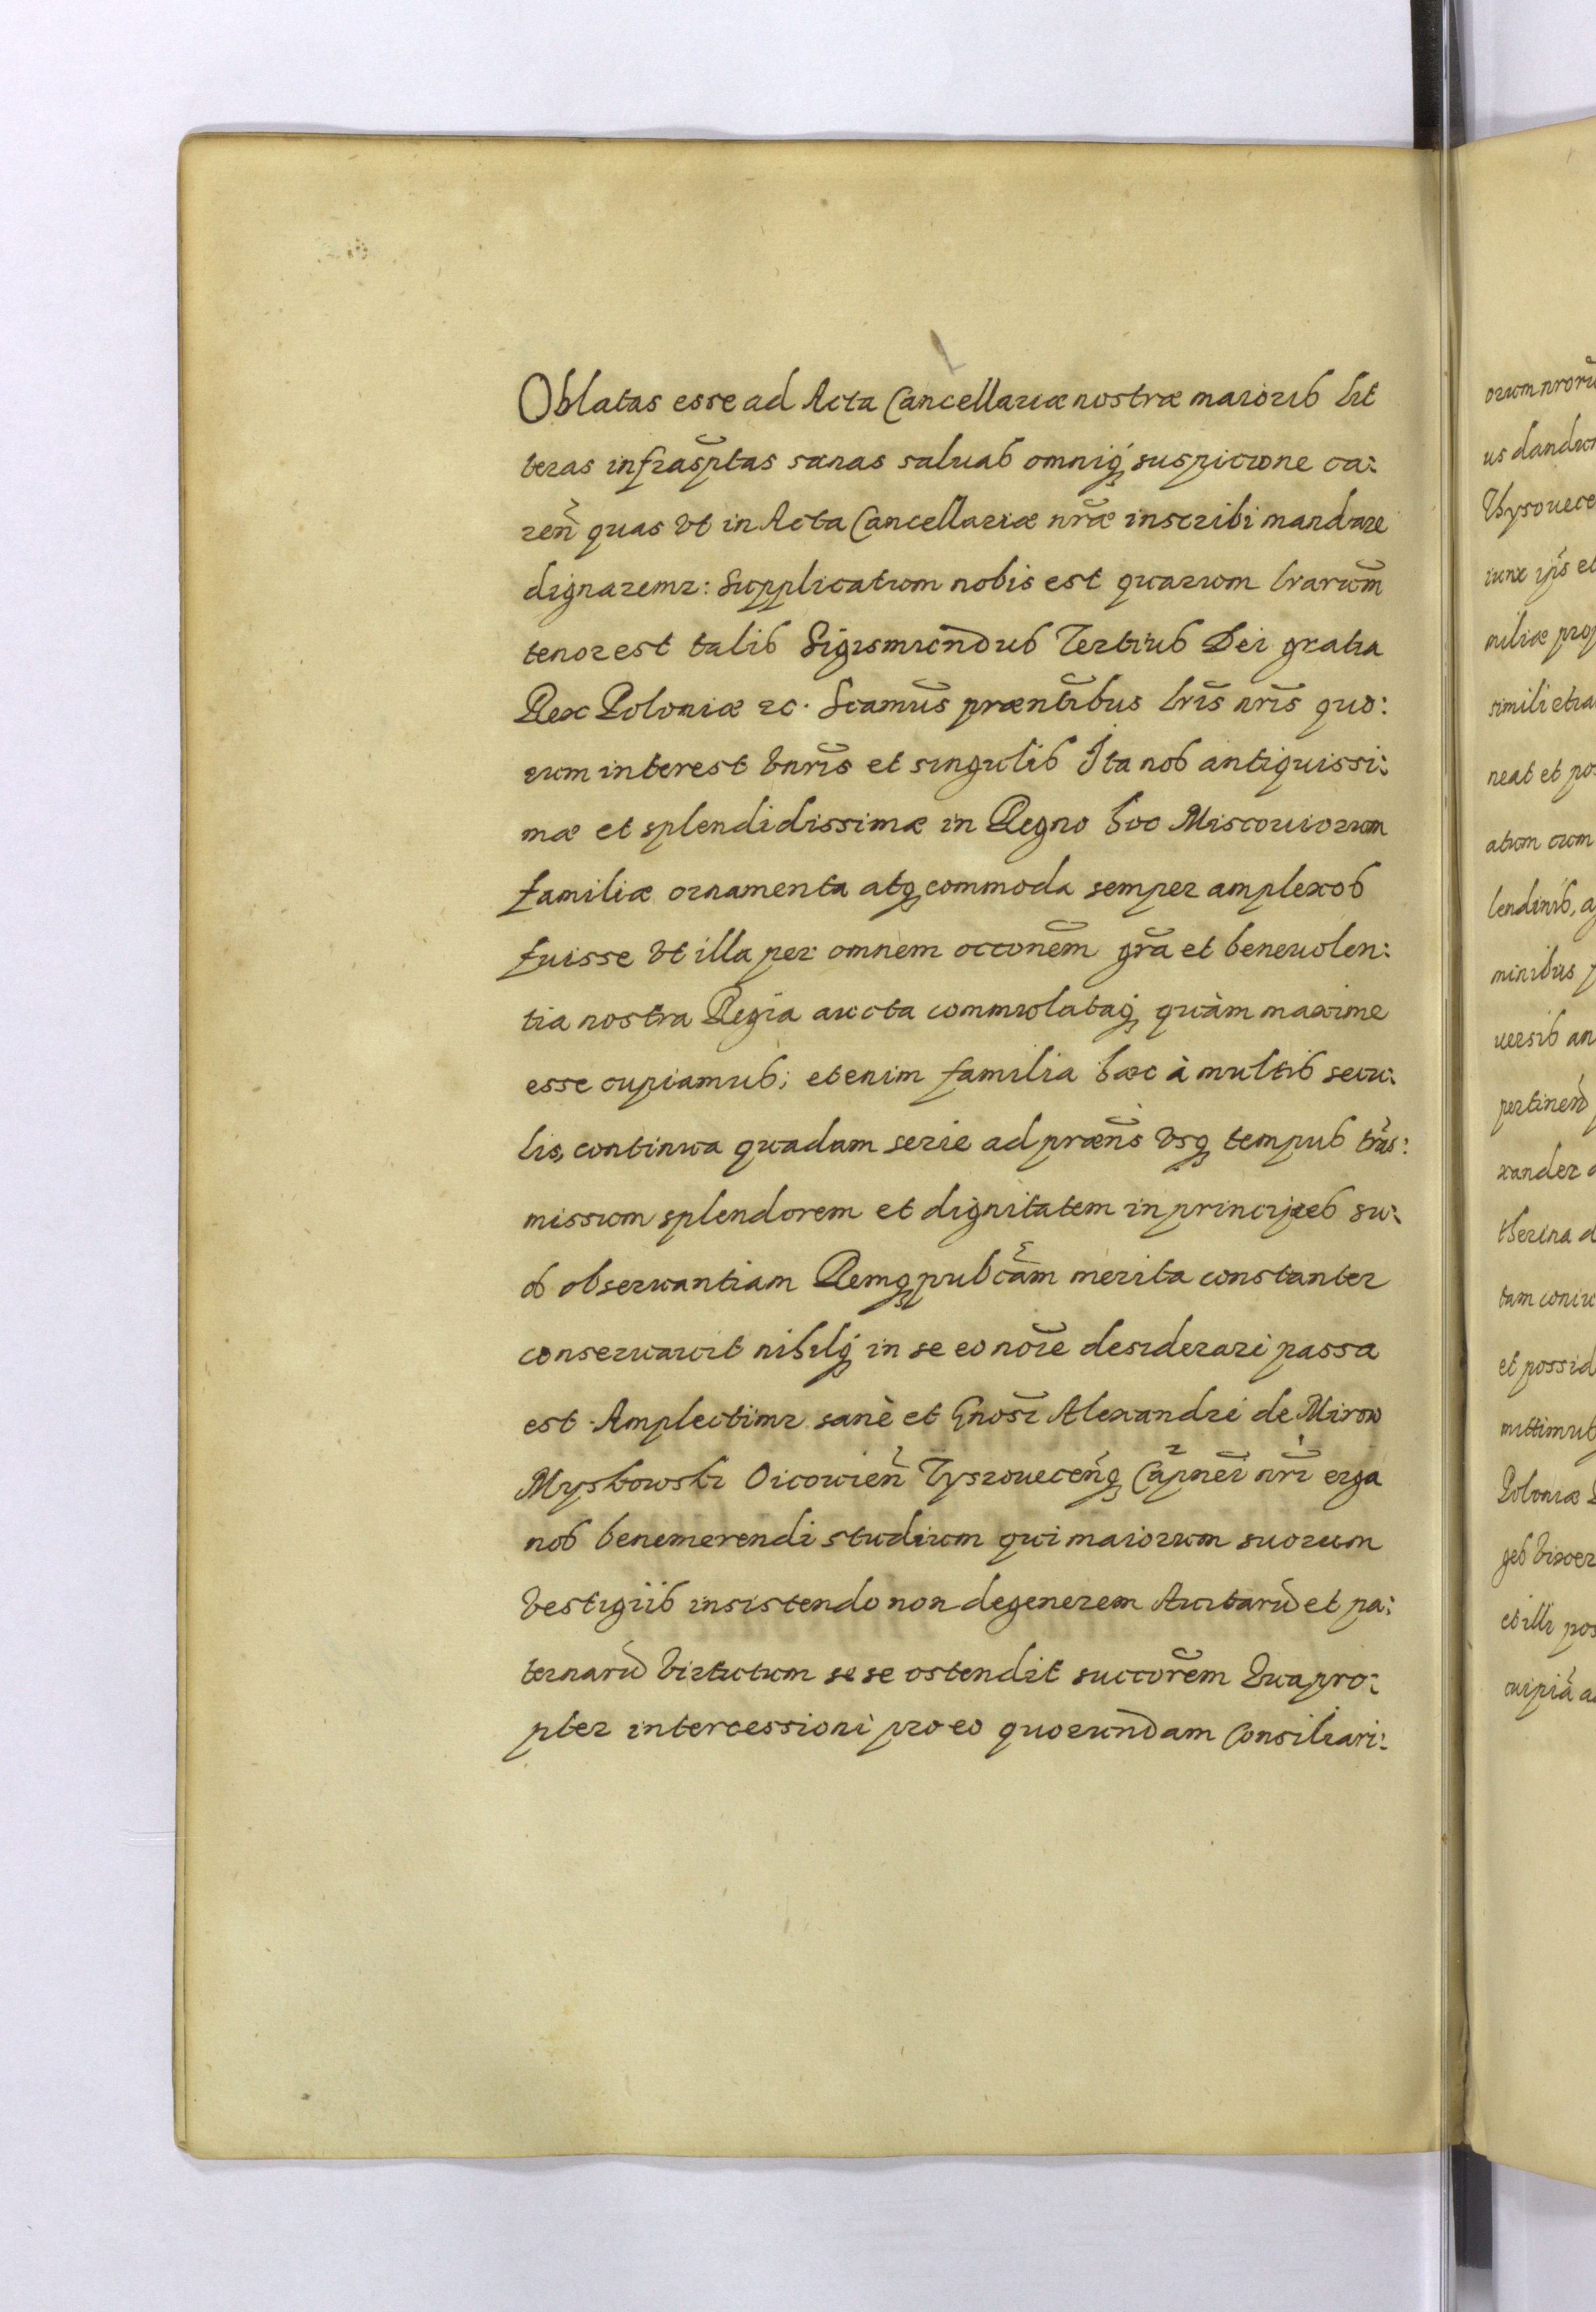 Oblatas esse ad Acta Cancellariæ nostræ maioris lit
teras infrasc̃ptas sanas saluas omniq́ꝫ suspicione ca:
reñ quas vt in Acta Cancellariæ nr̃æ inscribi mandare
dignaremr: Supplicatum nobis est quarum lrarum̃
tenor est talis Sigismundus Tertius Dei gratia
Rex Poloniæ ꝛc. Scamũs præñtibus lr̃is nr̃is quo:
rum interest vnr̃is et singulis Ita nos antiquissi:
mæ et splendidissimæ in Regno hoc Miscouiorum
familiæ ornamenta atqꝫ commoda semper amplexos
fuisse vt illa per omnem occonẽm gr̃a et beneuolen:
tia nostra Regia aucta commulataq́ꝫ quàm maxime
esse cupiamus; etenim familia hæc à multis secu:
lis, continua quadam serie ad præñs vsqꝫ tempus trãs:
missum splendorem et dignitatem in principes su:
os obseruantiam Remqꝫ pubcãm merita constanter
conseruauit nihilq́ꝫ in se eo nõie desiderari passa
est. Amplectimr sanè et Gnosĩ Alexandri de Mirow
Myskowski Oicouieñ Tyszoueceñqꝫ Cãpneĩ nrĩ erga
nos benemerendi studium qui maiorum suorum
vestigiis insistendo non degenerem Auitarũ et pa:
ternarũ virtutum sese ostendit succorẽm Quapro:
pter intercessioni pro eo quorundam Consiliari:
orum nrorũ
us dandum
Thysouece
iunx ipĩs et
miliæ prop
simili etia
neat et pos
atum cum
lendinis, a
minibus p
uersis an
pertineñ
xander
therina d
tam coniu
et possid
mittimus
Poloniæ
ges vixer
et illi pos
cuipiã a